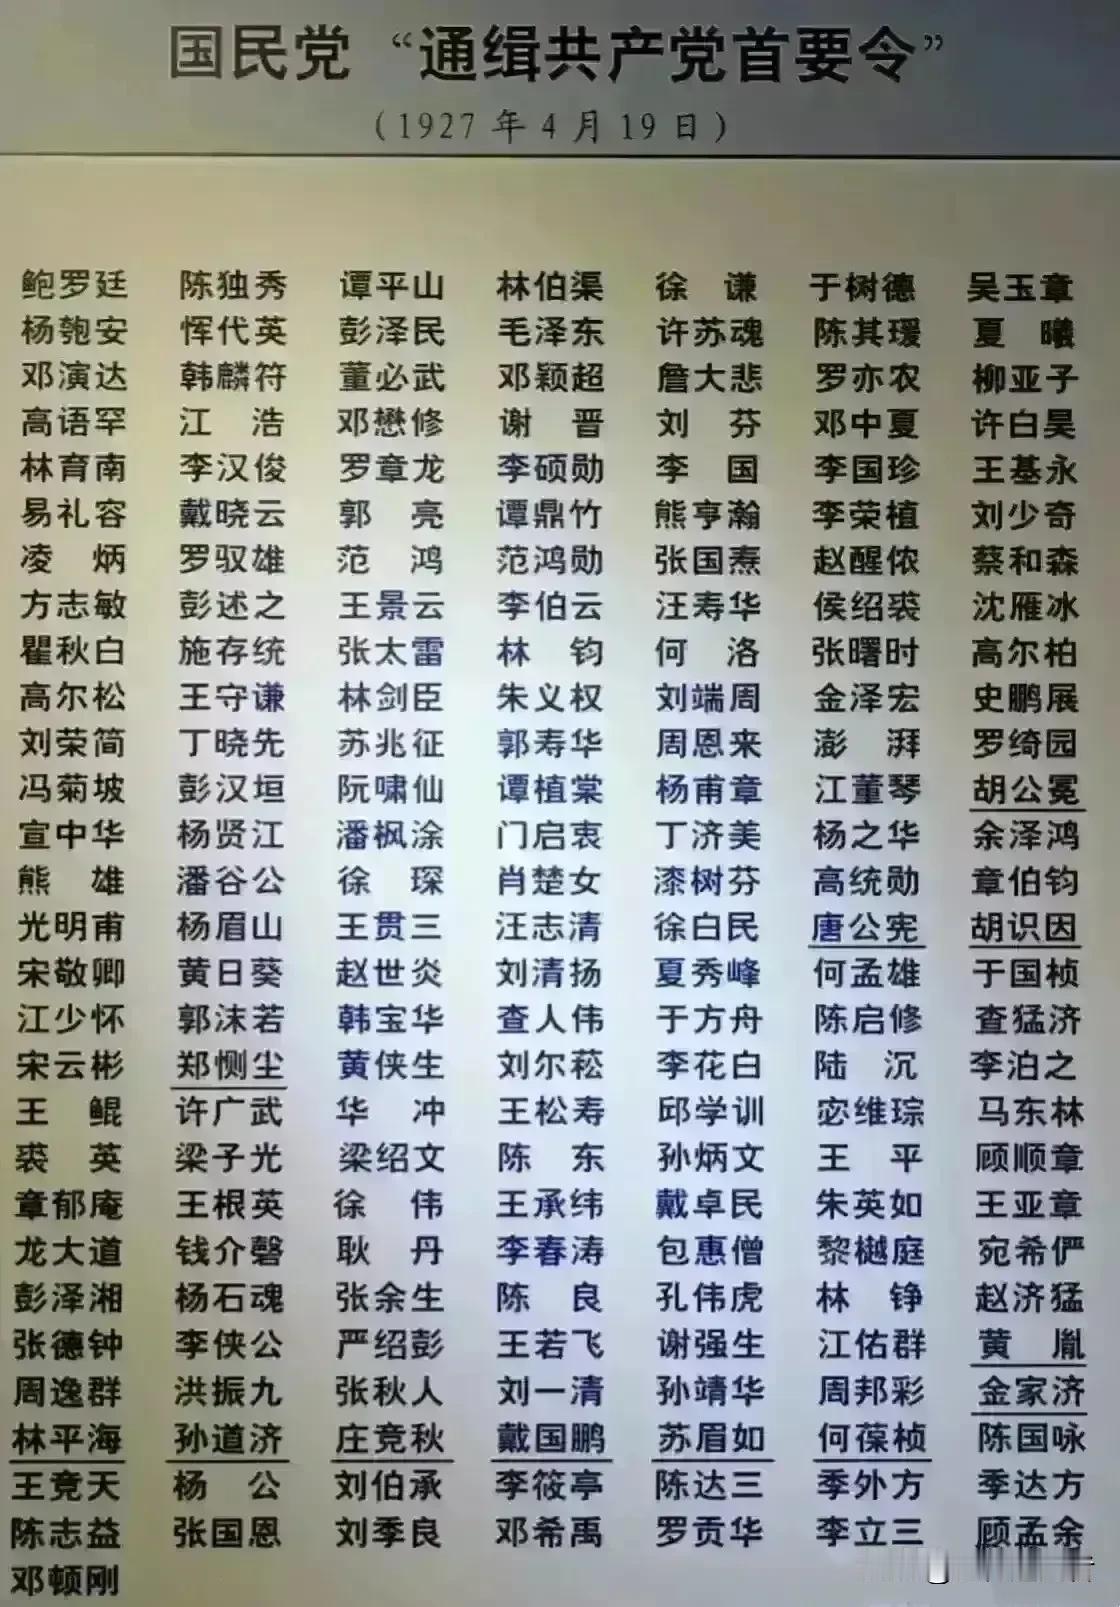 国民党 “通缉共产党首要令”
(1927年4月19日)
鲍罗廷 陈独秀 谭平山 林伯渠 徐谦 于树德 吴玉章
杨匏安 恽代英 彭泽民 毛泽东 许苏魂 陈其瑗 夏曦
邓演达 韩麟符 董必武 邓颖超 詹大悲 罗亦农 柳亚子
高语罕 江浩 邓懋修 谢晋 刘芬 邓中夏 许白昊
林育南 李汉俊 罗章龙 李硕勋 李国 李国珍 王基永
易礼容 戴晓云 郭亮 谭鼎竹 熊亨瀚 李荣植 刘少奇
凌炳 罗驭雄 范鸿 范鸿勋 张国焘 赵醒侬 蔡和森
方志敏 彭述之 王景云 李伯云 汪寿华 侯绍裘 沈雁冰
瞿秋白 施存统 张太雷 林钧 何洛 张曙时 高尔柏
高尔松 王守谦 林剑臣 朱义权 刘端周 金泽宏 史鹏展
刘荣简 丁晓先 苏兆征 郭寿华 周恩来 澎湃 罗绮园
冯菊坡 彭汉垣 阮啸仙 谭植棠 杨甫章 江董琴 胡公冕
宣中华 杨贤江 潘枫涂 门启衷 丁济美 杨之华 余泽鸿
熊雄 潘谷公 徐琛 肖楚女 漆树芬 高统勋 章伯钧
光明甫 杨眉山 王贯三 汪志清 徐白民 唐公宪 胡识因
宋敬卿 黄日葵 赵世炎 刘清扬 夏秀峰 何孟雄 于国桢
江少怀 郭沫若 韩宝华 查人伟 于方舟 陈启修 查猛济
宋云彬 郑恻尘 黄侠生 刘尔菘 李花白 陆沉 李泊之
王鲲 许广武 华冲 王松寿 邱学训 宓维琮 马东林
裘英 梁子光 梁绍文 陈东 孙炳文 王平 顾顺章
章郁庵 王根英 徐伟 王承纬 戴卓民 朱英如 王亚章
龙大道 钱介磬 耿丹 李春涛 包惠僧 黎樾庭 宛希俨
彭泽湘 杨石魂 张余生 陈良 孔伟虎 林铮 赵济猛
张德钟 李侠公 严绍彭 王若飞 谢强生 江佑群 黄胤
周逸群 洪振九 张秋人 刘一清 孙靖华 周邦彩 金家济
林平海 孙道济 庄竞秋 戴国鹏 苏眉如 何葆桢 陈国咏
王竞天 杨公 刘伯承 李筱亭 陈达三 季外方 季达方
陈志益 张国恩 刘季良 邓希禹 罗贡华 李立三 顾孟余
邓顿刚